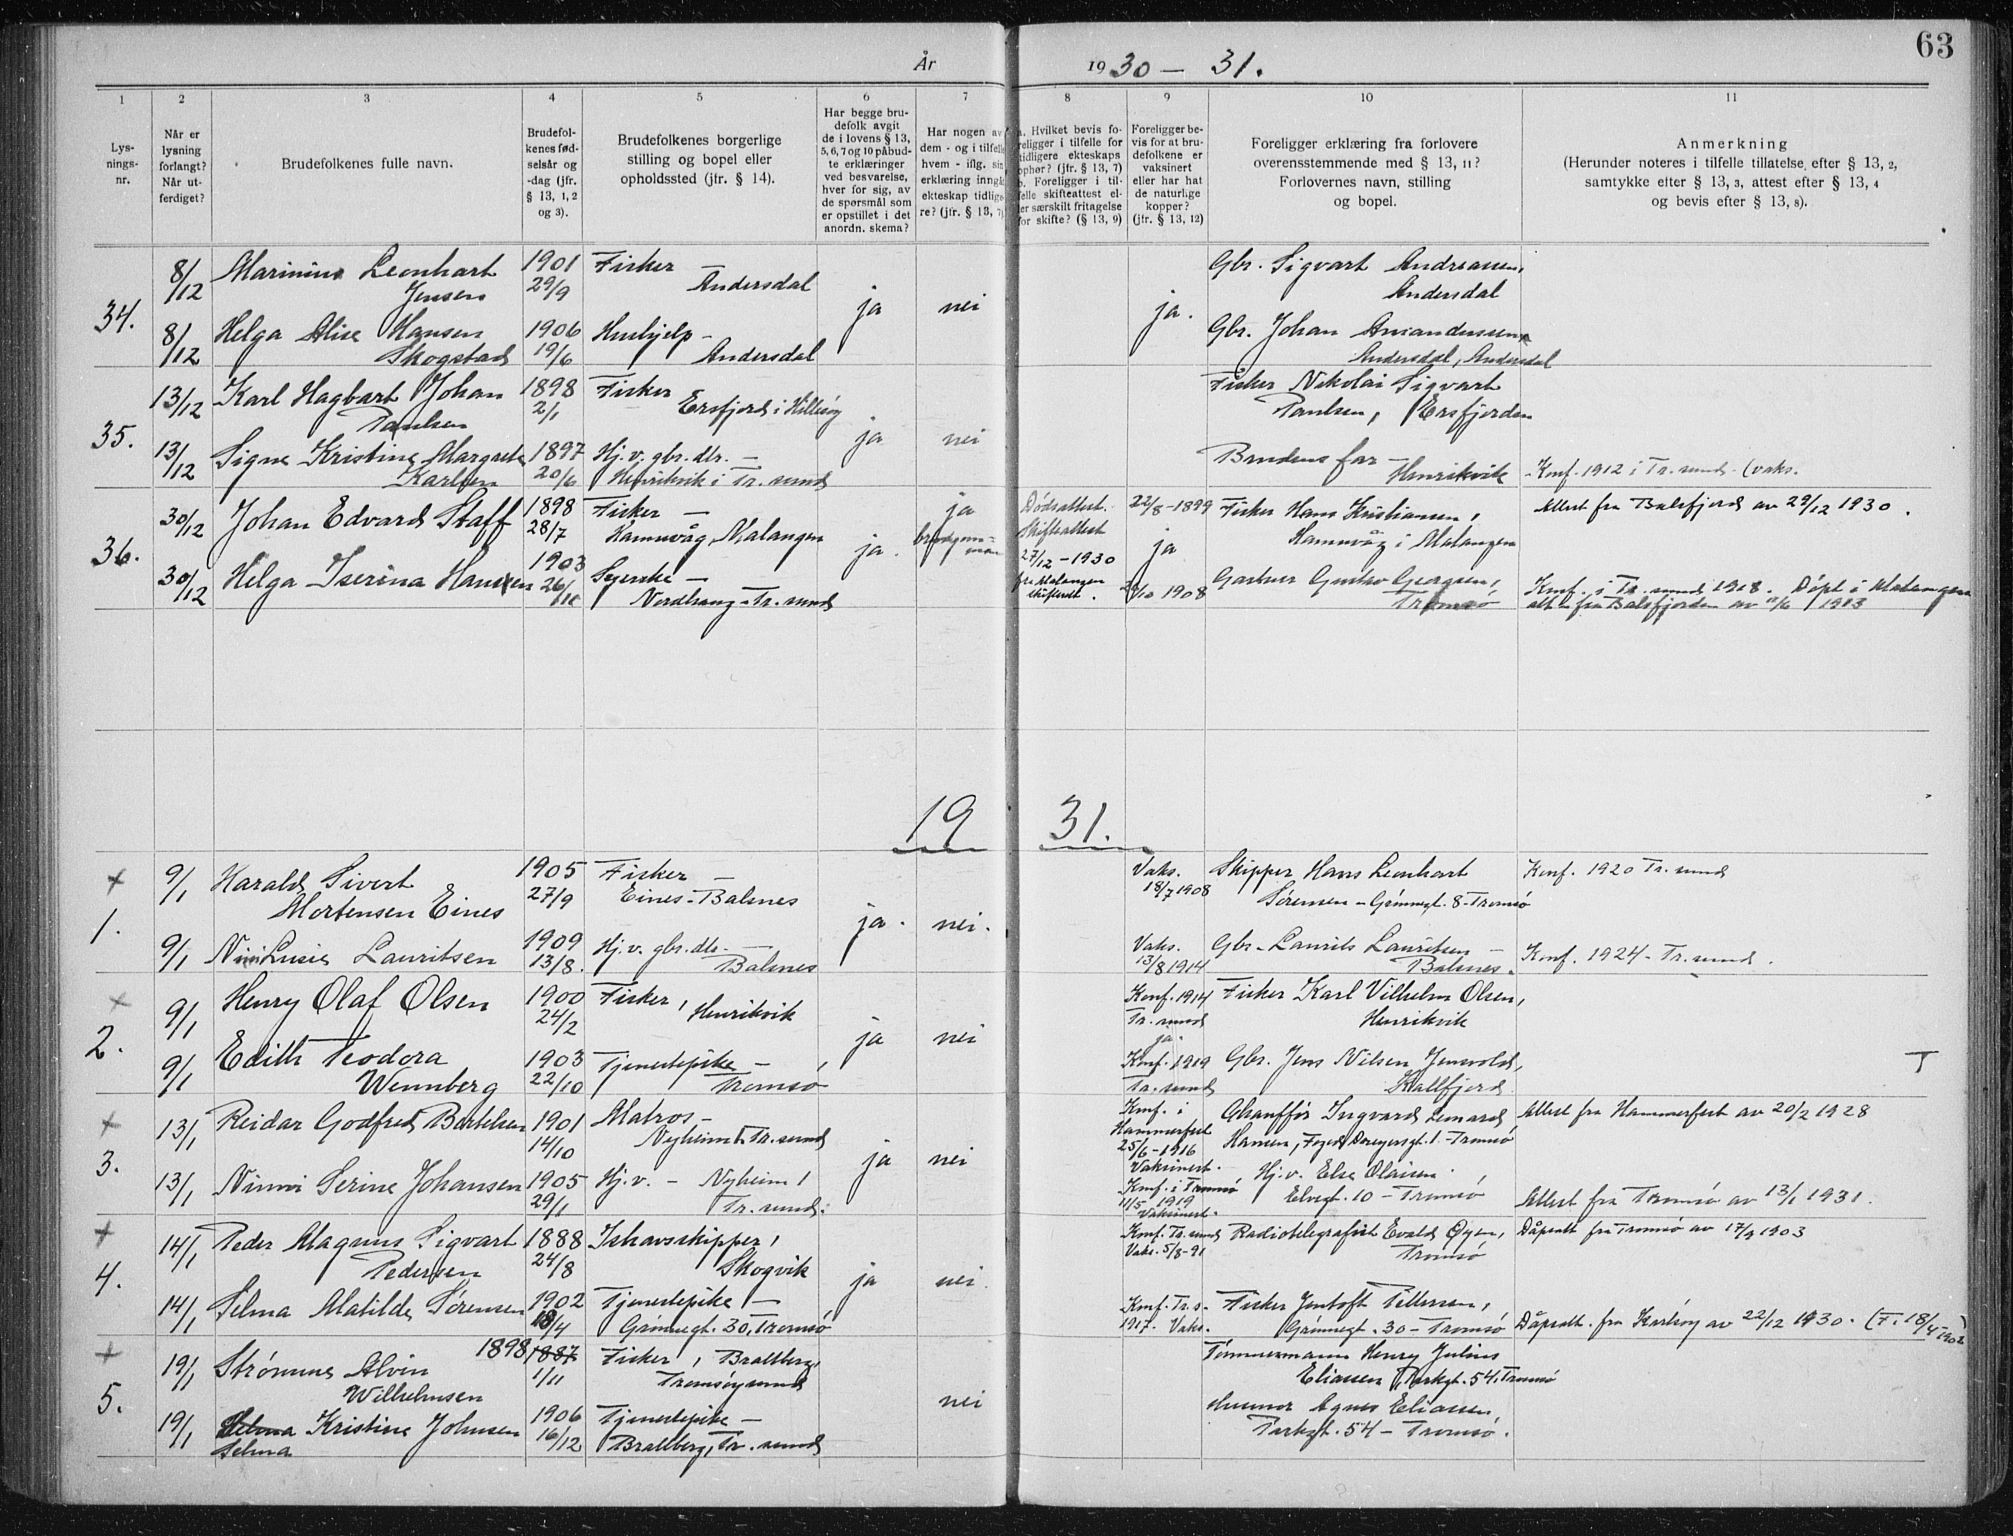 63
År 1930 — 31.
1 2 3 4 5 6 7 8 9 10 11
Lys-
nings-
nr.
Når er
lysning
forlangt?
Når ut-
ferdiget?
Brudefolkenes fulle navn.
Brudefol-
kenes fød-
selsår og
-dag (jfr.
§ 13, 1, 2
og 3).
Brudefolkenes borgerlige
stilling og bopel eller
opholdssted (jfr. § 14).
Har begge bru-
defolk avgit
de i lovens § 13,
5, 6, 7 og 10 påbud-
te erklæringer
ved besvarelse,
hver for sig, av
de spørsmål som
er opstillet i det
anordn. skema?
Har nogen av
dem - og i tilfelle
hvem - iflg. sin
erklæring inngå
ekteskap tidlige
re? (jfr. § 13, 7)
a. Hvilket bevis fo-
religger i tilfelle for
tidligere ekteskaps
ophør? (jfr. § 13, 7)
b. Foreligger i til-
felle skifteattest el-
ler særskilt fritagelse
for skifte? (§ 13, 9)
Foreligger be-
vis for at bru-
defolkene er
vaksinert
eller har hat
de naturlige
kopper?
(jfr. § 13, 12)
Foreligger erklæring fra forlovere
overensstemmende med § 13, 11?
Forlovernes navn, stilling
og bopel.
Anmerkning
(Herunder noteres i tilfelle tillatelse efter § 13, 2,
samtykke efter § 13, 3, attest efter § 13, 4
og bevis efter § 13, 8).
34.
8/12 Marinius Leonhart 1901 Fisker — Gbr. Sigvart Andreassen,
Jensen 29/9 Andersdal ja nei ja. Andersdal
8/12 Helga Alise Hansen 1906 Hushjelp — Gbr. Johan Amandussen
Skogstad 19/6 Andersdal Andersdal, Andersdal
35.
13/12 Karl Hagbart Johan 1898 Fisker Fisker Nikolai Sigvart
Paulsen 2/1 Ersfjord i Hillesøy ja nei Paulsen, Ersfjorden
13/12 Signe Kristine Margrete 1897 Hj. v. gbr. dtr. — Brudens far —
Karlsen 20/6 Henrikvik i Tr. sund Henrikvik Konf. 1912 i Tr. sund (vaks.
36.
30/12 Johan Edvard Staff 1898 Fisker — ja Dødsattest. 22/8-1899 Fisker Hans Kristiansen, Attest fra Balsfjord av 29/12 1930.
28/7 Hamnvåg, Malangen ja. brudgom-
man Skifteattest ja Hamnvåg i Malangen
30/12 Helga Iserina Hansen 1903 Syerske — 27/12-1930 Gartner Gustav Georgsen, Konf. i Tr. sund 1918. Døpt i Malangen
26/11 Nordhaug - Tr. sund fra Malangen
skifterett. /10 1908 Tromsø att. fra Balsfjorden av /6 1913
19 31.
1.
+ 9/1 Harald Sivert 1905 Fisker — Vaks. Skipper Hans Leonhart Konf. 1920 Tr. sund
Mortensen Eines 27/9 Eines-Balsnes ja. nei. 18/7 1908 Sørensen - Grønnegt. 8 - Tromsø
9/1 Lusie Lauritsen 1909 Hj. v. gbr. dtr. — Vaks. Gbr. Laurits Lauritsen — Konf. 1924 - Tr. sund.
13/8. Balsnes 13/8 1914 Balsnes.
2.
+ 9/1 Henry Olaf Olsen 1900 Fisker, Konf. 1914 Fisker Karl Vilhelm Olsen,
24/2 Henrikvik ja nei Tr. sund Henrikvik
ja.
9/1 Edith Teodora 1903 Tjenestepike — Konf. 1919 Gbr. Jens Nilsen Jensvold, T
Wennberg 22/10 Tromsø Tr. sund Kallfjord.
3.
+ 13/1 Reidar Godfred Bertelsen 1901 Matros — Konf. i Chauffør Ingvard Lenard Attest fra Hammerfest av 20/2 1928
14/10 Nyheim, Tr. sund ja nei Hammerfest
25/6-1916 Hansen, Foged Dreyersgt. 1 - Tromsø
Vaksinert.
13/1 Serine Johansen 1905 Hj. v. — Nyheim, Konf. i Tromsø Hj. v. Else Olaisen,
29/1 Tr. sund. 11/5 1919
Vaksinert. Elvegt. 10 - Tromsø Attest fra Tromsø av 13/1 1931.
4.
+ 14/1 Peder Magnus Sigvart 1888 Ishavsskipper, Konf. Tr. sund Radiotelegrafist Evald Øyen, Dåpsatt. fra Tromsø av 17/9 1903
Pedersen 24/8 Skogvik ja nei. Vaks. 5/8-91 Tromsø
14/1 Selma Matilde Sørensen 1902 Tjenestepike — Konf. Tr. s. Fisker Jentoft Pettersen,
18/4 Grønnegt. 30, Tromsø 1917. Vaks. Grønnegt. 30 - Tromsø Dåpsatt. fra Karlsøy av 22/12 1930. (F. 18/4-1902)
5.
+ 19/1 Strømme Alvin 1898 1887 Fisker, Bratberg, Tømmermann Henry Julius
Wilhelmsen 1/11 Tromsøysund nei Eliassen, Parkgt. 54, Tromsø
19/1 Kristine Johnsen 1906 Tjenestepike — Husmor Agnes Eliassen,
Selma 16/12 Bratberg, Tr. sund Parkgt. 54 - Tromsø.